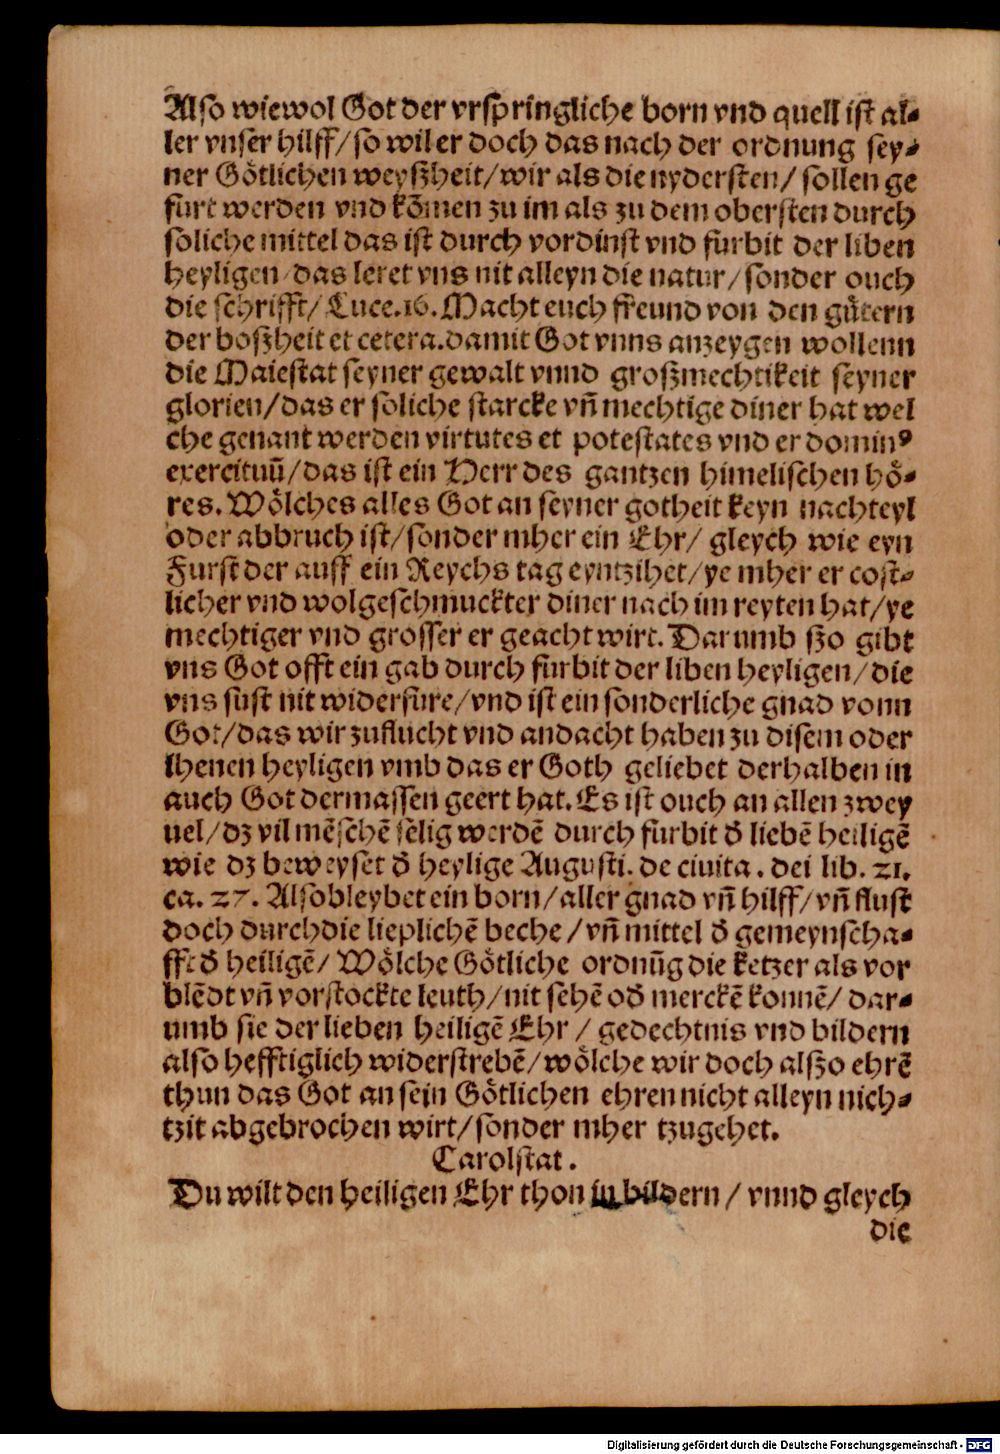 Also wiewol Got der vrspringliche born vnd quell ist al⸗
ler vnser hilff/ so wil er doch das nach der ordnung sey⸗
ner Götlichen weyßheit/ wir als die nydersten/ sollen ge
furt werden vnd kōmen zu im als zu dem obersten durch
soliche mittel das ist durch vordinst vnd furbit der liben
heyligen/ das leret vns nit alleyn die natur/ sonder ouch
die schrifft/ Luce.16. Macht euch freund von den gůtern
der boßheit et cetera. damit Got vnns anzeygen wollenn
die Maiestat seyner gewalt vnnd großmechtikeit seyner
glorien/ das er soliche starcke vñ mechtige diner hat wel
che genant werden virtutes et potestates vnd er dominꝰ
exercituū/ das ist ein Herr des gantzen himelischen hö⸗
res. Wölches alles Got an seyner gotheit keyn nachteyl
oder abbruch ist/ sonder mher ein Ehr/ gleych wie eyn
Furst der auff ein Reychs tag eyntzihet/ ye mher er cost⸗
licher vnd wolgeschmuckter diner nach im reyten hat/ ye
mechtiger vnd grosser er geacht wirt. Darumb ßo gibt
vns Got offt ein gab durch furbit der liben heyligen/ die
vns sust nit widerfure/ vnd ist ein sonderliche gnad vonn
Got/ das wir zuflucht vnd andacht haben zu disem oder
Ihenen heyligen vmb das er Goth geliebet derhalben in
auch Got dermassen geert hat. Es ist ouch an allen zwey
uel/ dz vil mēschē selig werdē durch furbit đ liebē heiligē
wie dz beweyset đ heylige Augusti. de ciuita. dei lib. 21.
ca. 27. Also bleybet ein born/ aller gnad vñ hilff/ vñ flust
doch durch die lieplichē beche/ vñ mittel đ gemeynscha⸗
fft đ heiligē/ Wölche Götliche ordnūg die ketzer als vor
blēdt vñ vorstockte leuth/ nit sehē ođ merckē konnē/ dar⸗
umb sie der lieben heiligē Ehr/ gedechtnis vnd bildern
also hefftiglich widerstrebē/ wölche wir doch alßo ehrē
thun das Got an sein Götlichen ehren nicht alleyn nich⸗
tzit abgebrochen wirt/ sonder mher tzugehet.
Carolstat.
Du wilt den heiligen Ehr thon in bildern/ vnnd gleych
die
Digitalisierung gefördert durch die Deutsche Forschungsgemeinschaft - DFG